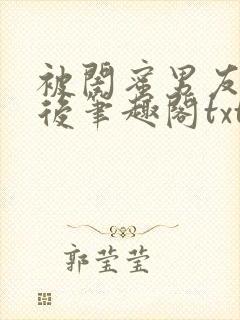 被閤蜜男友
後筆趣閣txt
郭莹莹